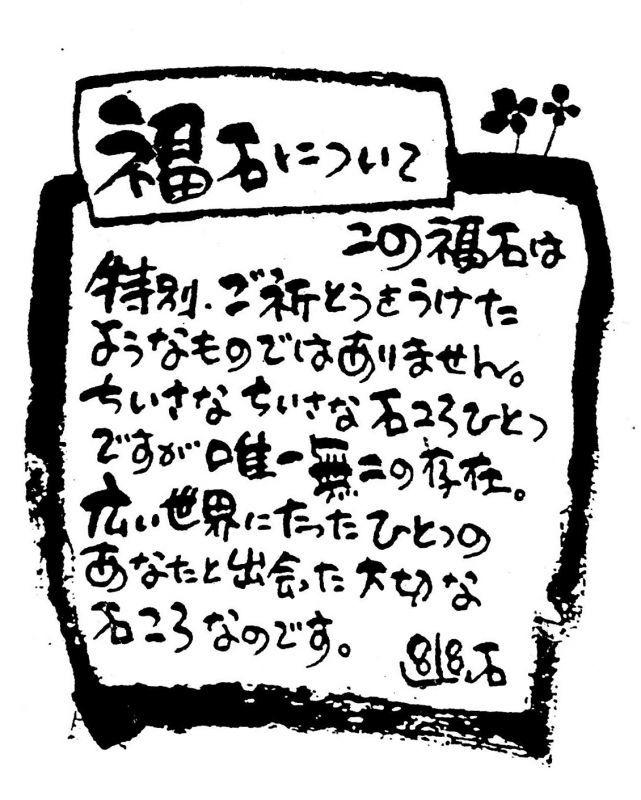 福石について
この福石は
特別、ご祈とうをうけた
ようなものではありません。
ちいさなちいさな石ころひとつ
ですが唯一無二の存在。
広い世界にたったひとつの
あなたと出会った大切な
石ころなのです。